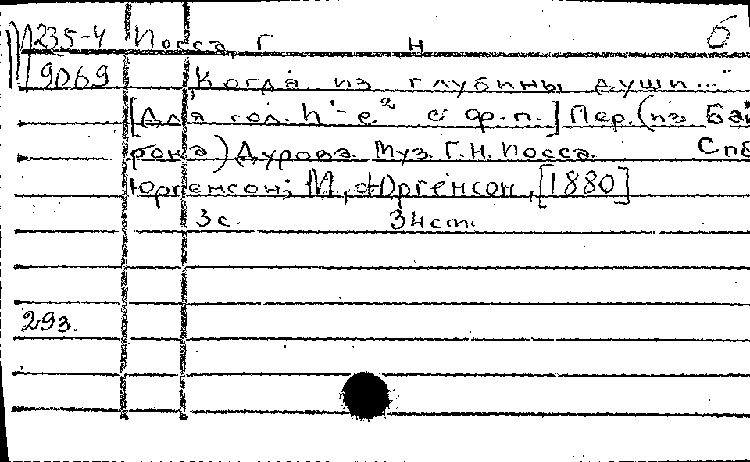 б
1235-4 Посса, Г Н
9069 "Когда из глубины души..."
[Для гол. h'-e² с ф.п.] Пер. (из Бай
рона) Дурова. Муз. Г.Н. Посса. Спб
Юргенсон; М., Юргенсон, [1880]
3 с. 34 cm.
293.